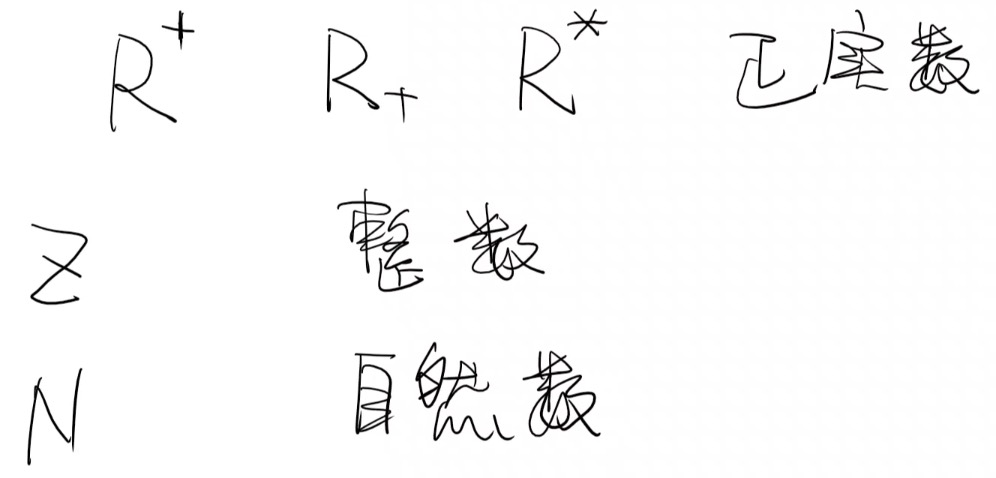 R⁺ R₊ R* 正实数
Z 整数
N 自然数